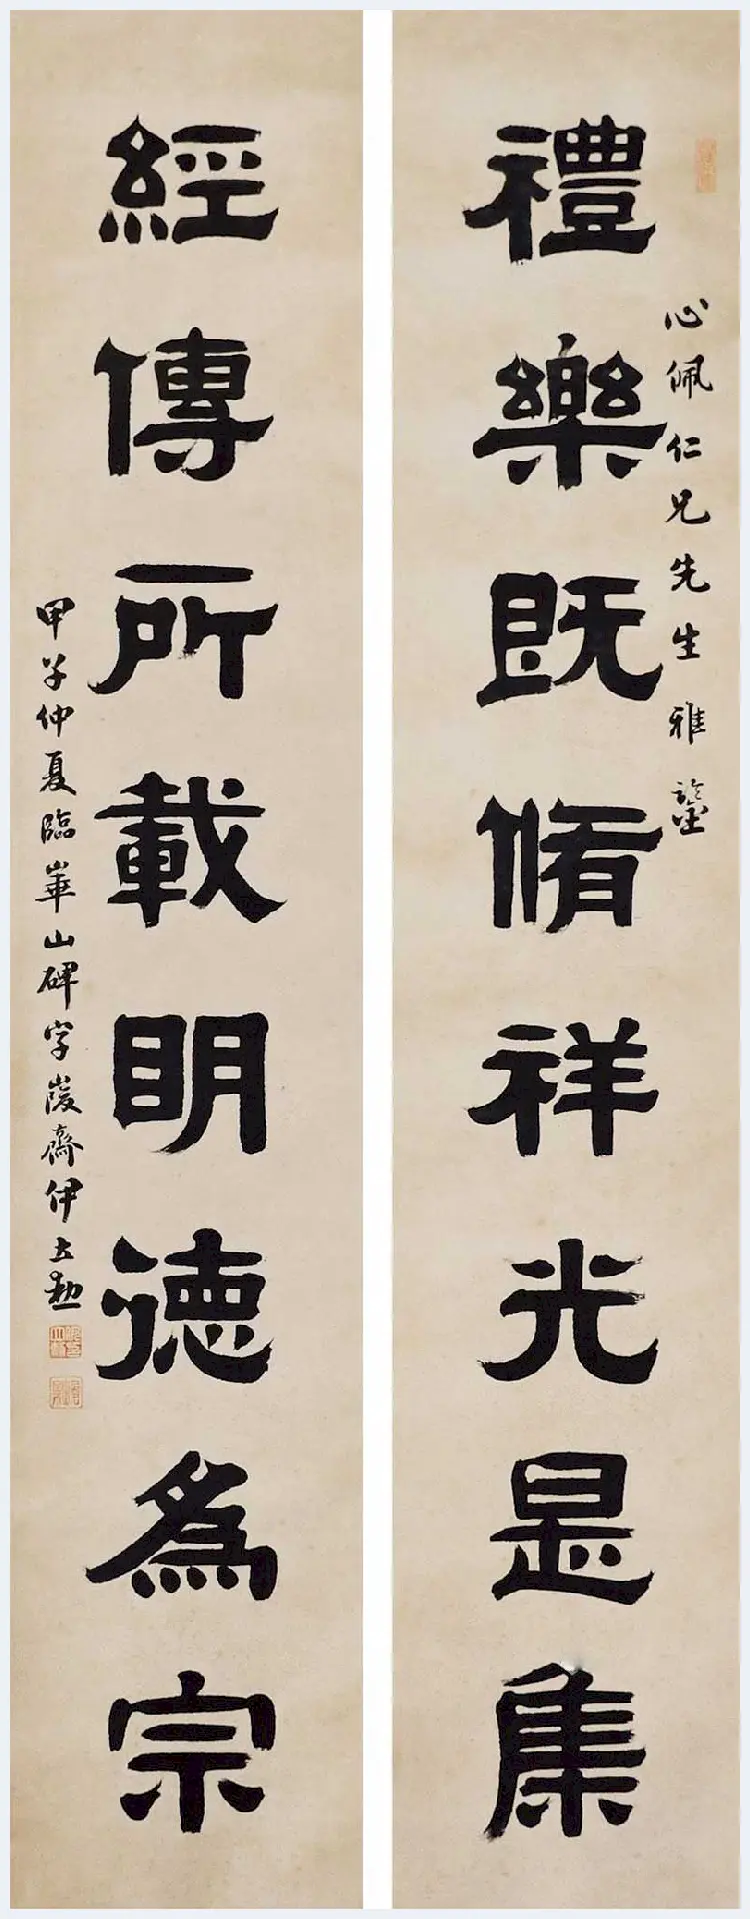 心佩仁兄先生雅鑒
禮樂既脩祥光是集
經傳所載明德為宗
甲子仲夏臨華山碑字峻齋伊立勳